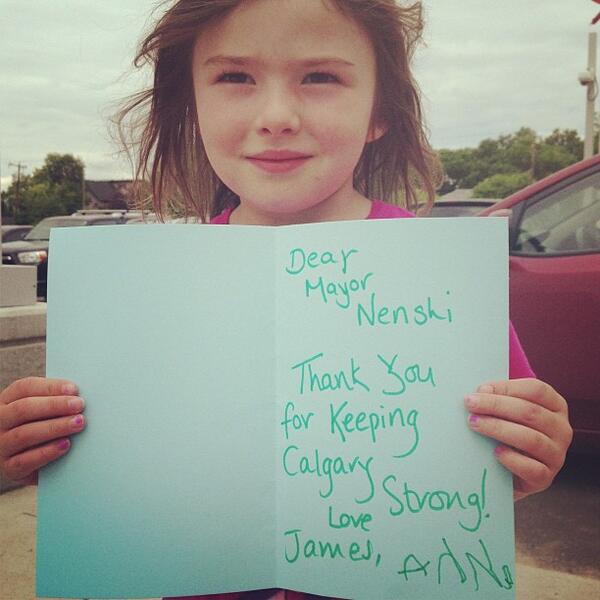 Dear
Mayor
Nenshi
Thank you
for Keeping
Calgary
Strong!
Love
James,